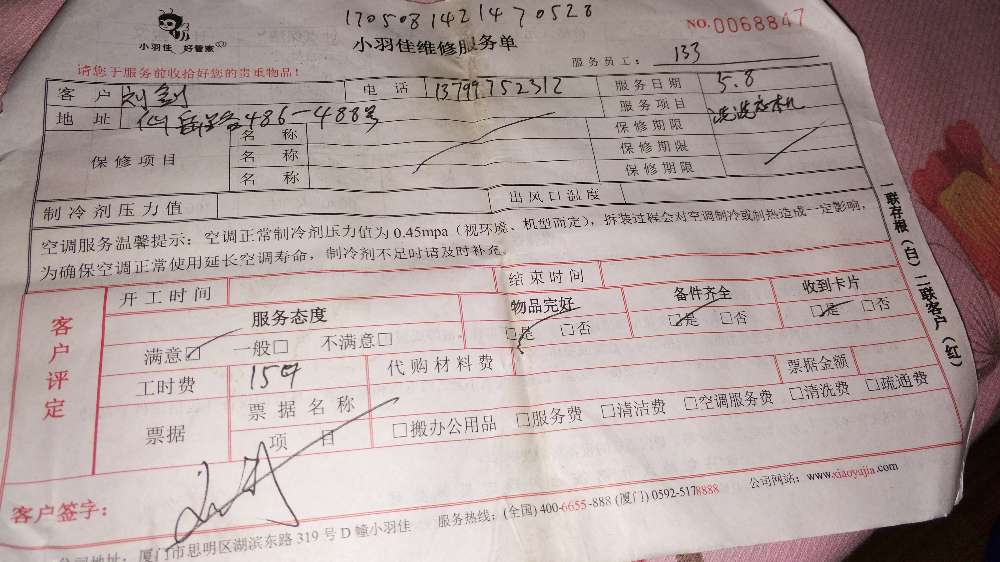 170508142147 0528
NO.0068847
小羽佳 好管家
小羽佳维修服务单
服务员工: 133
请您于服务前收拾好您的贵重物品!
客户 刘剑 电话 13799752312 服务日期 5.8
地址 486-488号 服务项目 洗洗衣机
保修项目 名称 保修期限
名称 保修期限
名称 保修期限
制冷剂压力值 出风口温度
空调服务温馨提示:空调正常制冷剂压力值为0.45mpa(视环境、机型而定),拆装过程会对空调制冷或制热造成一定影响,
为确保空调正常使用延长空调寿命,制冷剂不足时请及时补充。
一联存根(白)二联客户(红)
客户评定
开工时间 结束时间
服务态度 物品完好 备件齐全 收到卡片
满意□ 一般□ 不满意□ □是 □否 □是 □否 □是 □否
工时费 150 代购材料费
票据 票据名称 票据金额
项目 □搬办公用品 □服务费 □清洁费 □空调服务费 □清洗费 □疏通费
客户签字:
公司地址:厦门市思明区湖滨东路319号D幢小羽佳 服务热线:(全国)400-6655-888 (厦门)0592-5178888 公司网站:www.xiaoyujia.com